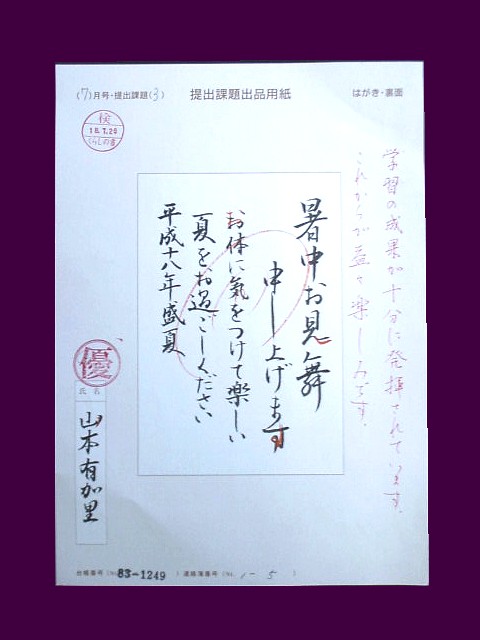 (7)月号・提出課題(3)
提出課題出品用紙
はがき・裏面
検
18.7.20
くらしの書
学習の成果が十分に発揮されています。
これからが益々楽しみです。
暑中お見舞
申し上げます
お体に気をつけて楽しい
夏をお過ごしください
平成十八年盛夏
優
氏名
山本有加里
会員番号(No.83-1249)連絡簿番号(No.1-5)